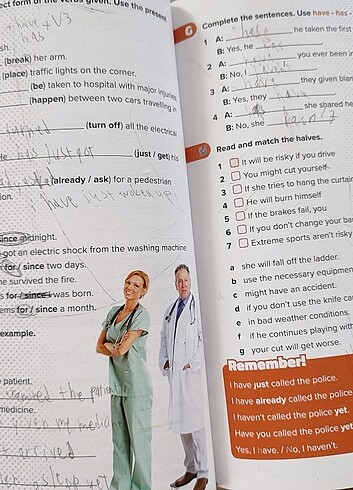 ect form of the verbs given. Use the present
have + V3
has
sh.
(break) her arm.
(place) traffic lights on the corner.
(be) taken to hospital with major injuries
(happen) between two cars travelling in
(turn off) all the electrical
has just got (just / get) his
(already / ask) for a pedestrian
ion.
i have just woken up
since midnight.
got an electric shock from the washing machine
for / since two days.
he survived the fire.
s for / since I was born.
ems for / since a month.
example.
patient.
the patient
medicine.
arrived
asleep yet
G
Complete the sentences. Use have - has -
1 A: has he taken the first
B: Yes, he has
2 A: you ever been in
B: No, I
3 A: they given blan
B: Yes, they have
4 A: she shared he
B: No, she
Read and match the halves.
1 It will be risky if you drive
2 You might cut yourself
3 If she tries to hang the curtai
4 He will burn himself
5 If the brakes fail, you
6 If you don't change your ba
7 Extreme sports aren't risky
a she will fall off the ladder.
b use the necessary equipmen
c might have an accident.
d if you don't use the knife ca
e in bad weather conditions.
f if he continues playing with
g your cut will get worse.
Remember!
I have just called the police.
I have already called the police.
I haven't called the police yet.
Have you called the police yet
Yes, I have. / No, I haven't.